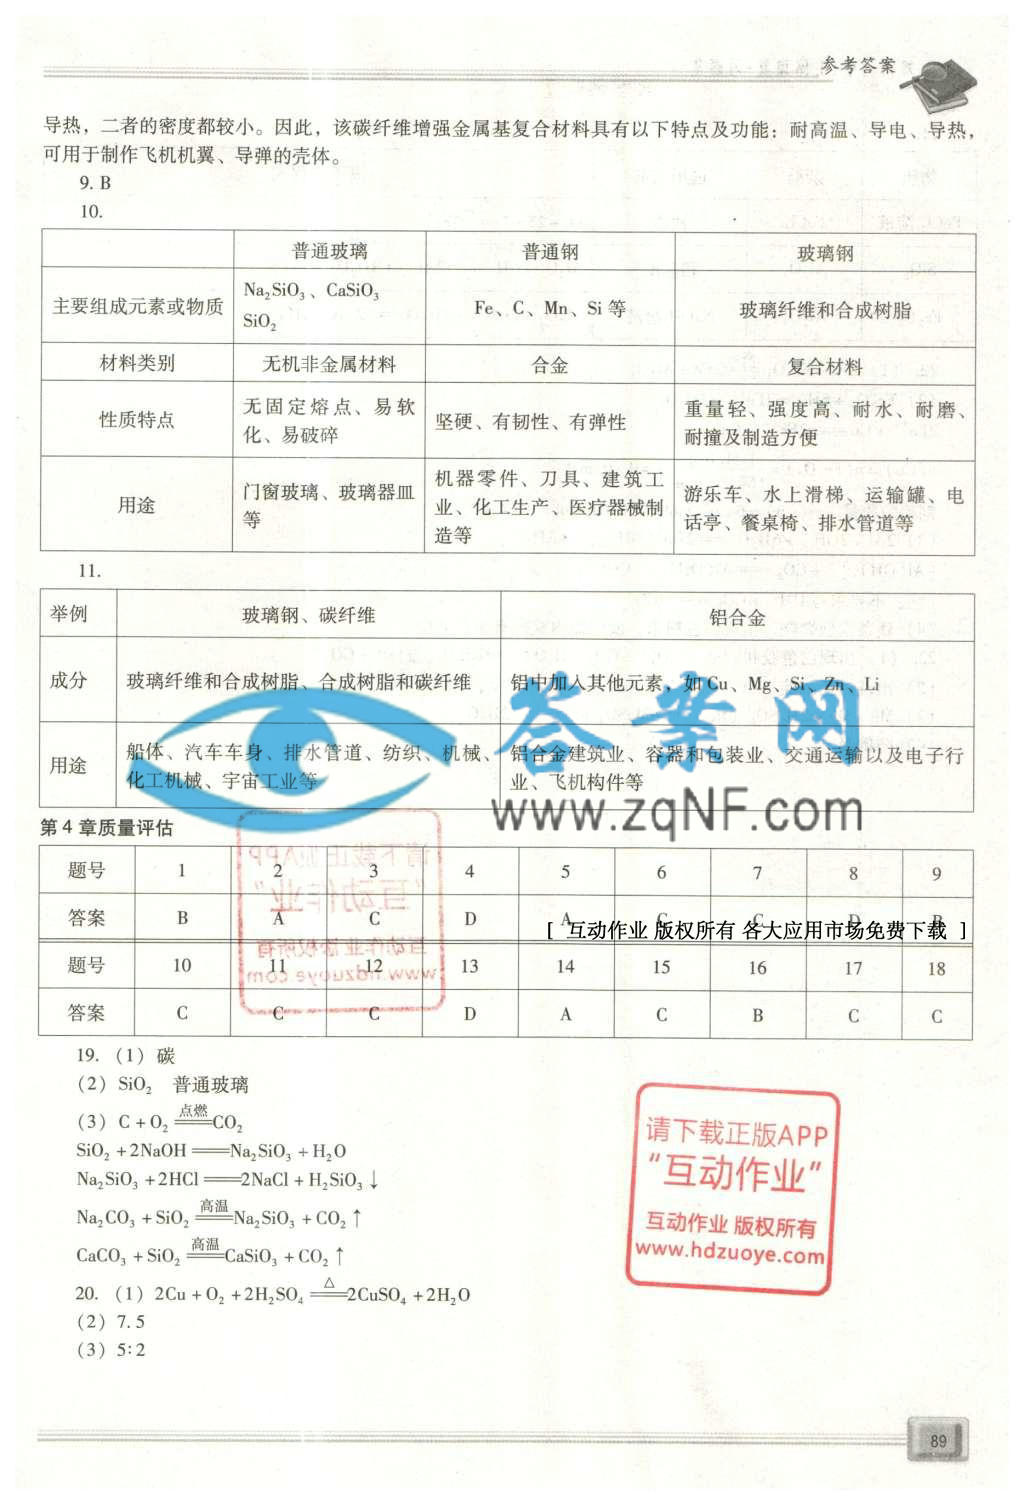 参考答案
导热，二者的密度都较小。因此，该碳纤维增强金属基复合材料具有以下特点及功能：耐高温、导电、导热，
可用于制作飞机机翼、导弹的壳体。
9. B
10.
普通玻璃 普通钢 玻璃钢
主要组成元素或物质 Na₂SiO₃、CaSiO₃ SiO₂ Fe、C、Mn、Si 等 玻璃纤维和合成树脂
材料类别 无机非金属材料 合金 复合材料
性质特点 无固定熔点、易软化、易破碎 坚硬、有韧性、有弹性 重量轻、强度高、耐水、耐磨、耐撞及制造方便
用途 门窗玻璃、玻璃器皿等 机器零件、刀具、建筑工业、化工生产、医疗器械制造等 游乐车、水上滑梯、运输罐、电话亭、餐桌椅、排水管道等
11.
举例 玻璃钢、碳纤维 铝合金
成分 玻璃纤维和合成树脂、合成树脂和碳纤维 铝中加入其他元素，如 Cu、Mg、Si、Zn、Li
用途 船体、汽车车身、排水管道、纺织、机械、化工机械、宇宙工业等 铝合金建筑业、容器和包装业、交通运输以及电子行业、飞机构件等
答案网
www.zqNF.com
第 4 章质量评估
题号 1 2 3 4 5 6 7 8 9
答案 B A C D A C C D B
[ 互动作业 版权所有 各大应用市场免费下载 ]
题号 10 11 12 13 14 15 16 17 18
答案 C C C D A C B C C
19. (1) 碳
(2) SiO₂ 普通玻璃
(3) C + O₂ ══点燃══ CO₂
SiO₂ + 2NaOH ══ Na₂SiO₃ + H₂O
Na₂SiO₃ + 2HCl ══ 2NaCl + H₂SiO₃↓
Na₂CO₃ + SiO₂ ══高温══ Na₂SiO₃ + CO₂↑
CaCO₃ + SiO₂ ══高温══ CaSiO₃ + CO₂↑
20. (1) 2Cu + O₂ + 2H₂SO₄ ══△══ 2CuSO₄ + 2H₂O
(2) 7.5
(3) 5∶2
请下载正版APP
“互动作业”
互动作业 版权所有
www.hdzuoye.com
89